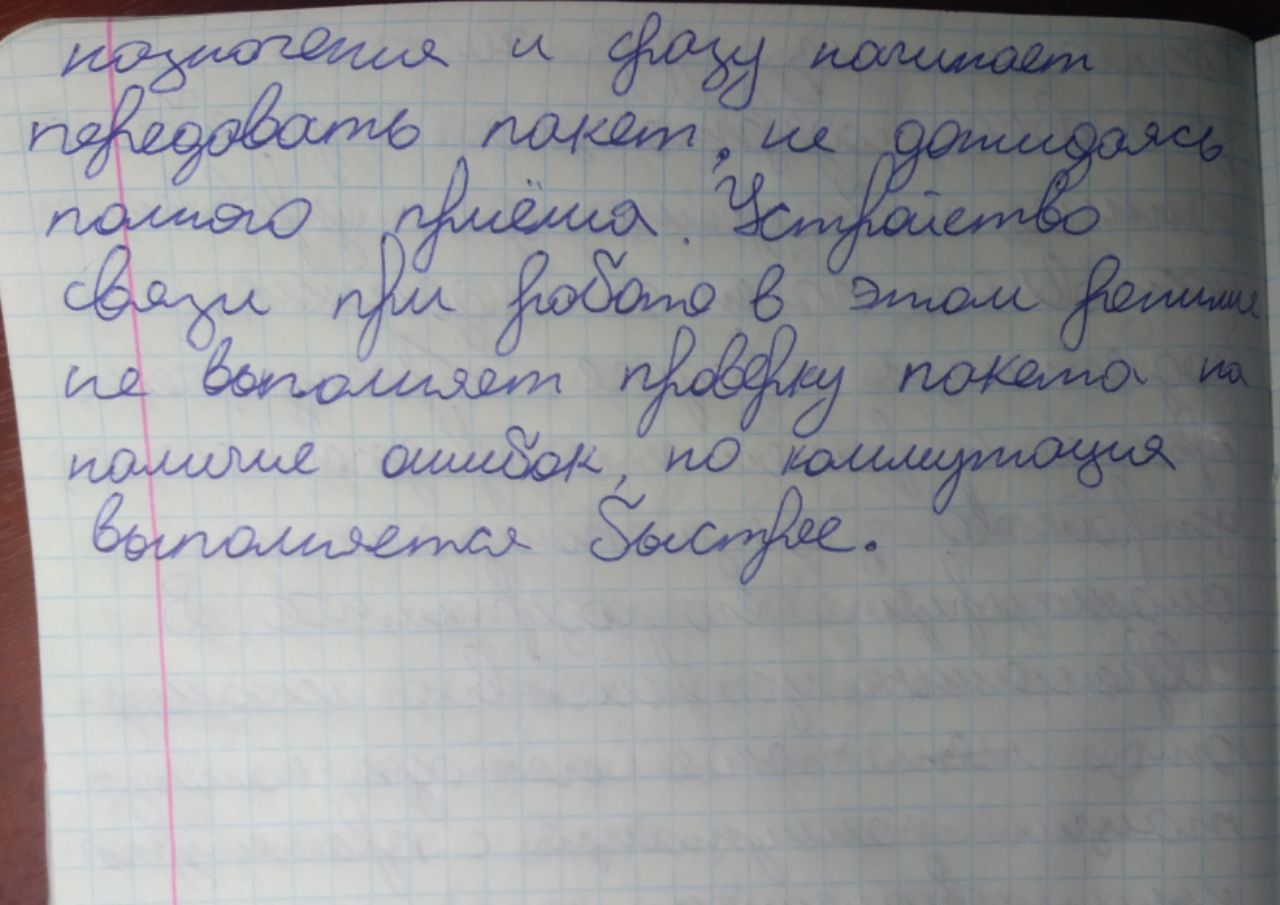 назначения и сразу начинает
передавать пакет, не дожидаясь
полного приёма. Устройство
связи при работе в этом режиме
не выполняет проверку пакета на
наличие ошибок, но коммутация
выполняется быстрее.